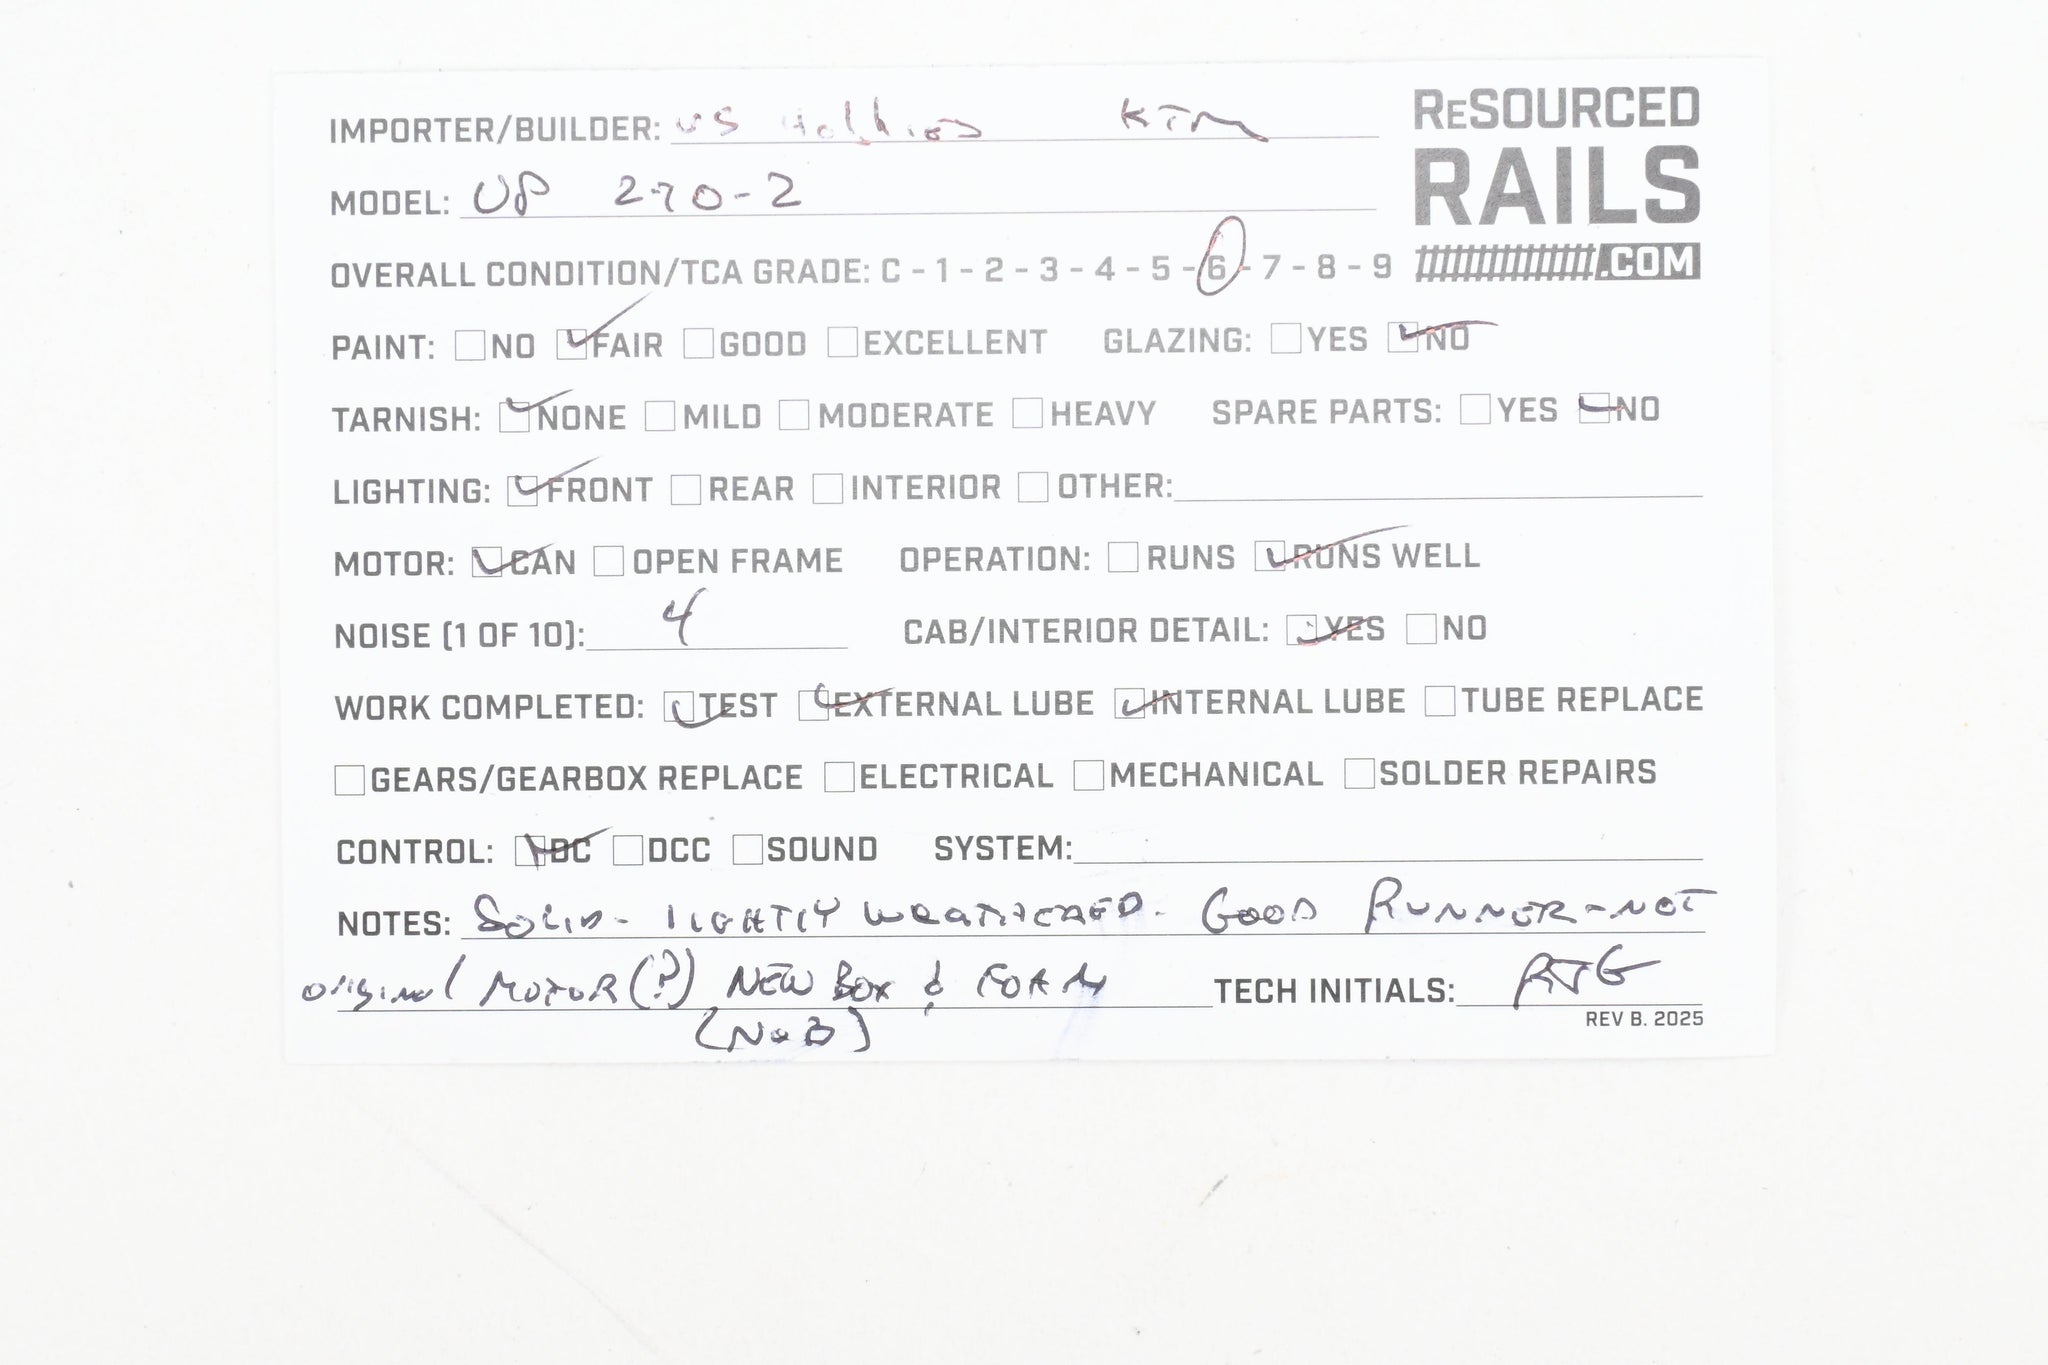 IMPORTER/BUILDER: US Hobbies KTM
ReSOURCED
RAILS
.COM
MODEL: UP 2-10-2
OVERALL CONDITION/TCA GRADE: C - 1 - 2 - 3 - 4 - 5 - 6 - 7 - 8 - 9
PAINT: NO FAIR GOOD EXCELLENT GLAZING: YES NO
TARNISH: NONE MILD MODERATE HEAVY SPARE PARTS: YES NO
LIGHTING: FRONT REAR INTERIOR OTHER:
MOTOR: CAN OPEN FRAME OPERATION: RUNS RUNS WELL
NOISE (1 OF 10): 4 CAB/INTERIOR DETAIL: YES NO
WORK COMPLETED: TEST EXTERNAL LUBE INTERNAL LUBE TUBE REPLACE
GEARS/GEARBOX REPLACE ELECTRICAL MECHANICAL SOLDER REPAIRS
CONTROL: DC DCC SOUND SYSTEM:
NOTES: SOLID - LIGHTLY WEATHERED. GOOD RUNNER - NOT
original MOTOR (?) NEW BOX & FOAM TECH INITIALS: RJG
(NOB)
REV B. 2025